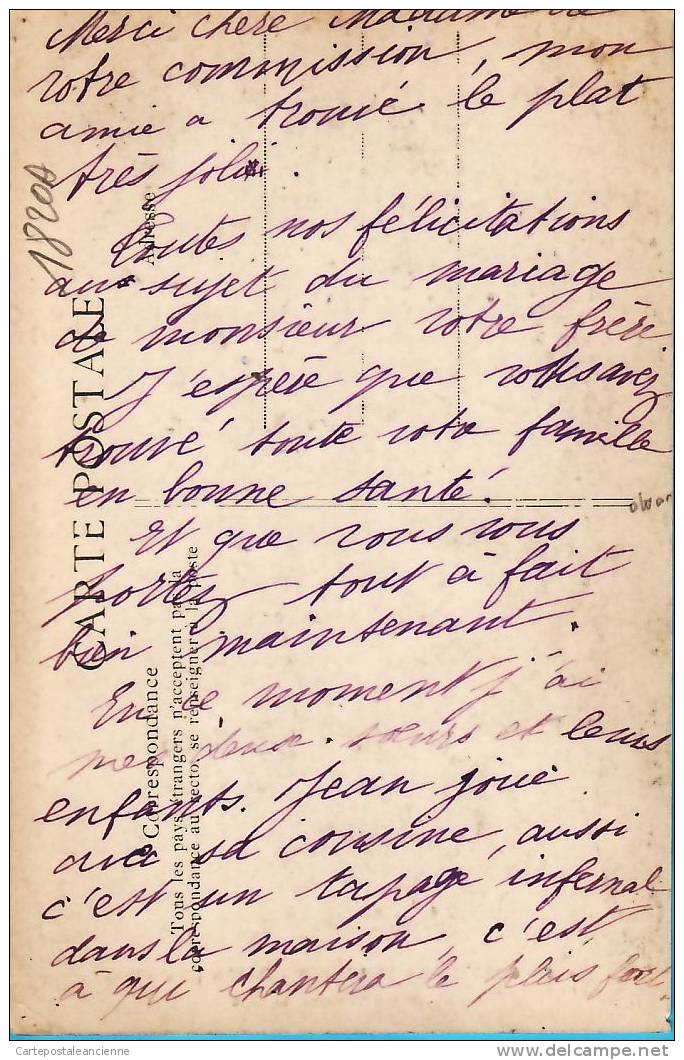 Merci chère Madame de
votre commission, mon
amie a trouvé le plat
très joli.
Toutes nos félicitations
au sujet du mariage
de monsieur votre frère
J'espère que vous avez
trouvé toute votre famille
en bonne santé.
Et que vous vous
portez tout à fait
bien maintenant.
En ce moment j'ai
mes deux sœurs et leurs
enfants. Jean joue
avec sa cousine, aussi
c'est un tapage infernal
dans la maison, c'est
à qui chantera le plus fort.
18200
CARTE POSTALE
Adresse
Correspondance
Tous les pays étrangers n'acceptent pas la
correspondance au recto, se renseigner à la poste
Cartepostaleancienne
www.delcampe.net